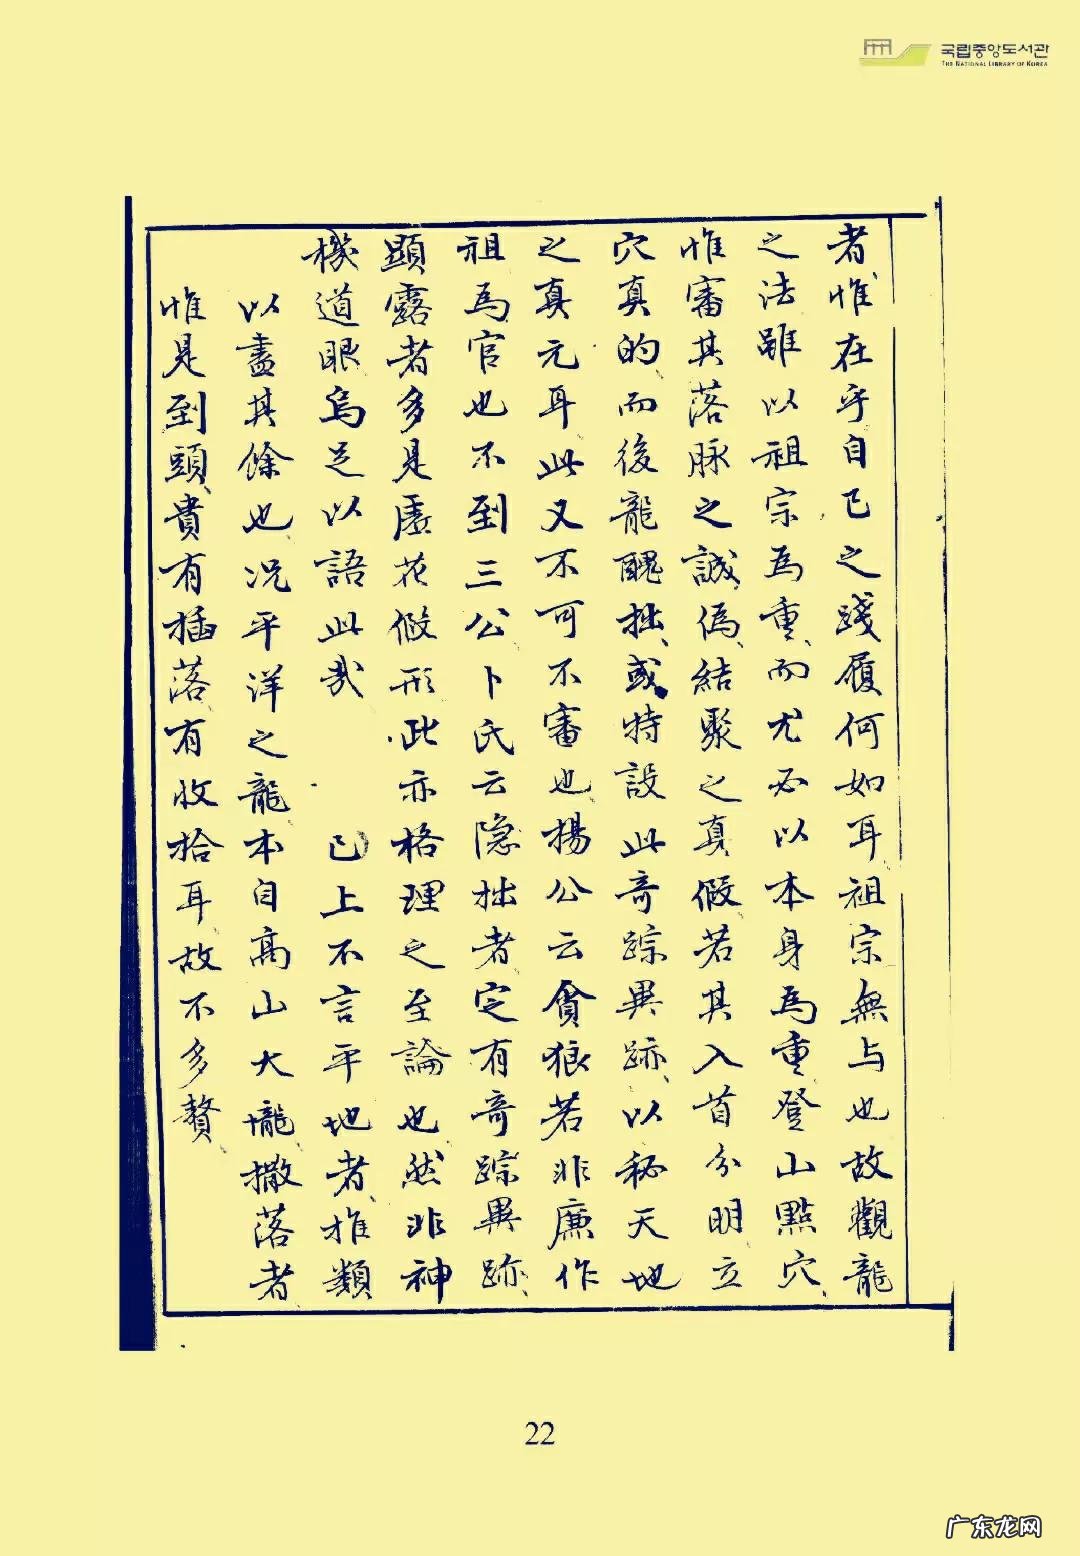 국립중앙도서관
THE NATIONAL LIBRARY OF KOREA
者惟在乎自己之踐履何如耳祖宗無与也故觀龍
之法雖以祖宗為重而尤必以本身為重登山點穴
惟審其落脉之誠僞結聚之真假若其入首分明立
穴真的而後龍醜拙或特設此奇踪異跡以秘天地
之真元耳此又不可不審也楊公云貪狼若非廉作
祖為官也不到三公卜氏云隐拙者定有奇踪異跡
顕露者多是虛花假形此亦格理之至論也然非神
機道眼烏足以語此哉 已上不言平地者推類
以盡其餘也况平洋之龍本自高山大壠撒落者
惟是到頭貴有插落有收拾耳故不多贅
22
广东龙网